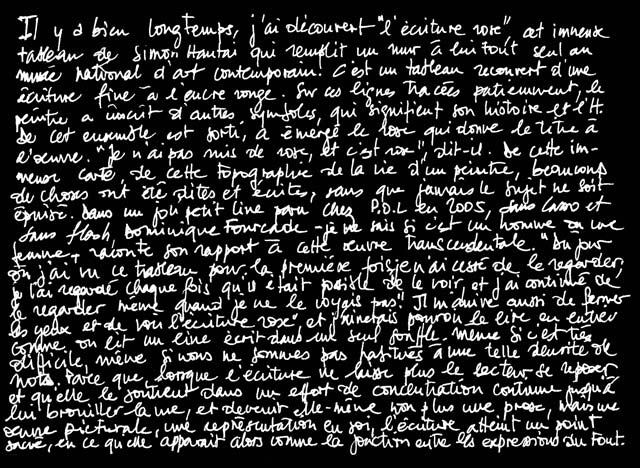 Il y a bien longtemps, j'ai découvert "l'écriture rose", cet immense
tableau de Simon Hantaï qui remplit un mur à lui tout seul au
musée national d'art contemporain. C'est un tableau recouvert d'une
écriture fine à l'encre rouge. Sur ces lignes tracées patiemment, le
peintre a inscrit d'autres symboles, qui signifient son histoire et l'H.
De cet ensemble est sorti, a émergé le rose qui donne le titre à
l'oeuvre. "Je n'ai pas mis de rose, et c'est rose", dit-il. De cette im-
mense carte, de cette topographie de la vie d'un peintre, beaucoup
de choses ont été dites et écrites, sans que jamais le sujet ne soit
épuisé. Dans un joli petit livre paru chez P.O.L en 2005, sans lasso et
sans flash, Dominique Fourcade - je ne sais si c'est un homme ou une
femme -, raconte son rapport à cette oeuvre transcendentale. "Du jour
où j'ai vu ce tableau pour la première fois je n'ai cessé de le regarder,
je l'ai regardé chaque fois qu'il était possible de le voir, et j'ai continué de
le regarder même quand je ne le voyais pas". Il m'arrive aussi de fermer
les yeux et de voir "l'écriture rose" et j'aimerais pouvoir le lire en entier
comme on lit un livre écrit dans un seul souffle. même si c'est très
difficile, même si nous ne sommes pas habitués à une telle densité de
mots. Parce que, lorsque l'écriture ne laisse plus le lecteur se reposer,
et qu'elle le soutient dans un effort de concentration continue jusqu'à
lui brouiller la vue, et devenir elle-même non plus une prose, mais une
oeuvre picturale, une représentation en soi, l'écriture atteint un point
sacré, en ce qu'elle apparaît alors comme la jonction entre les expressions du tout.